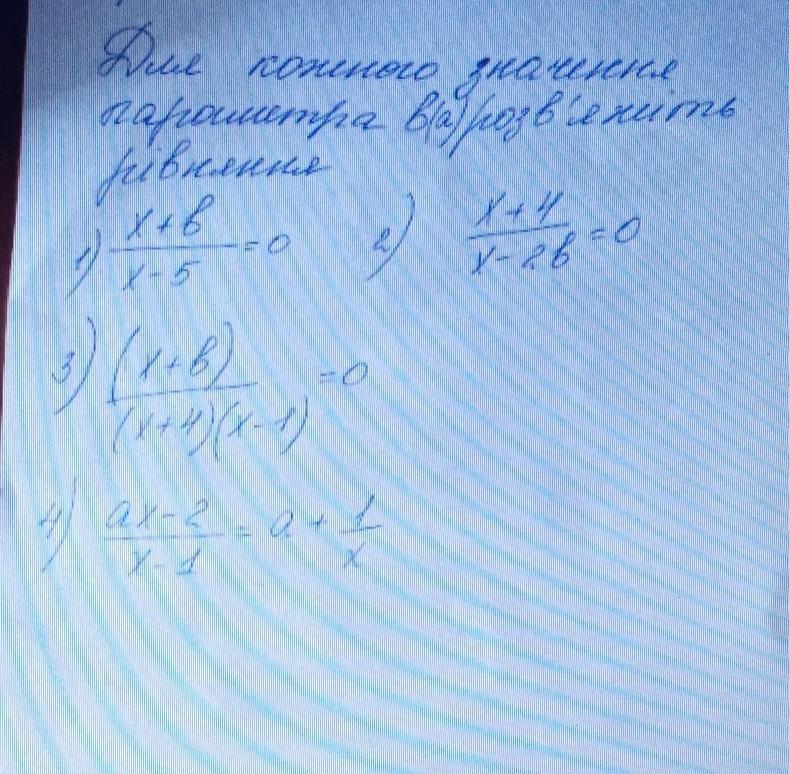 Для кожного значення
параметра в(а) розв'яжіть
рівняння
1) (x+в)/(x-5) = 0 2) (x+4)/(x-2в) = 0
3) (x+в)/((x+4)(x-1)) = 0
4) (ax-2)/(x-1) = a + 1/x